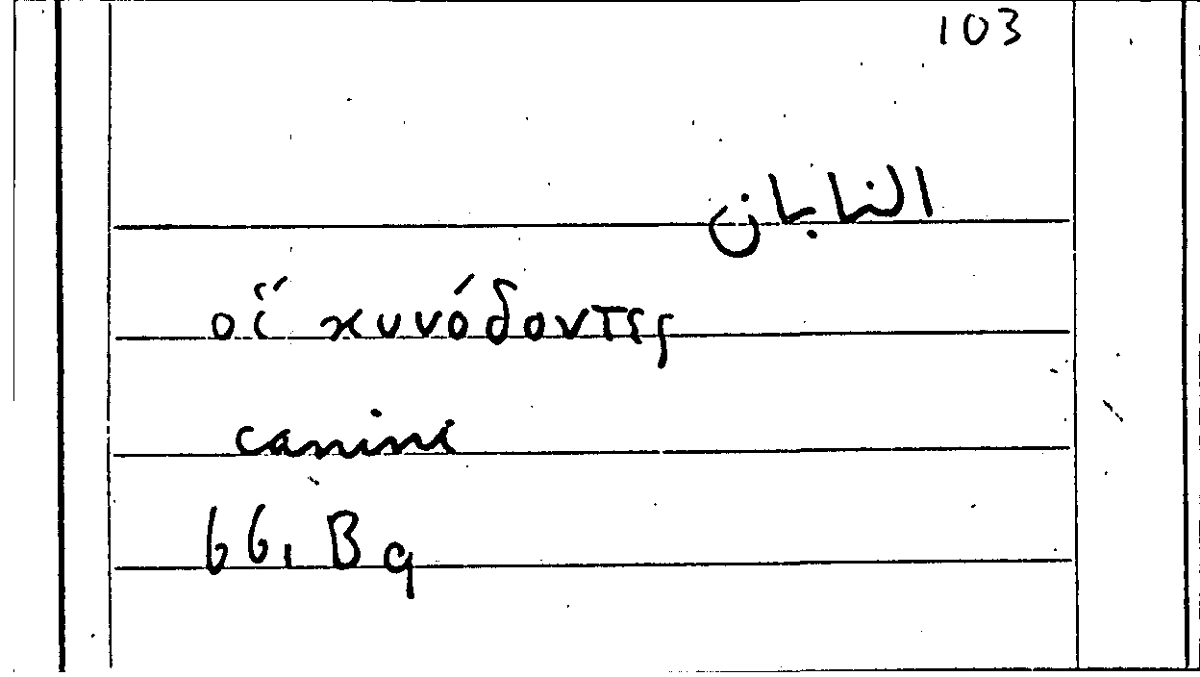 103
النابان
οἵ κυνόδοντες
canini
66, B 9